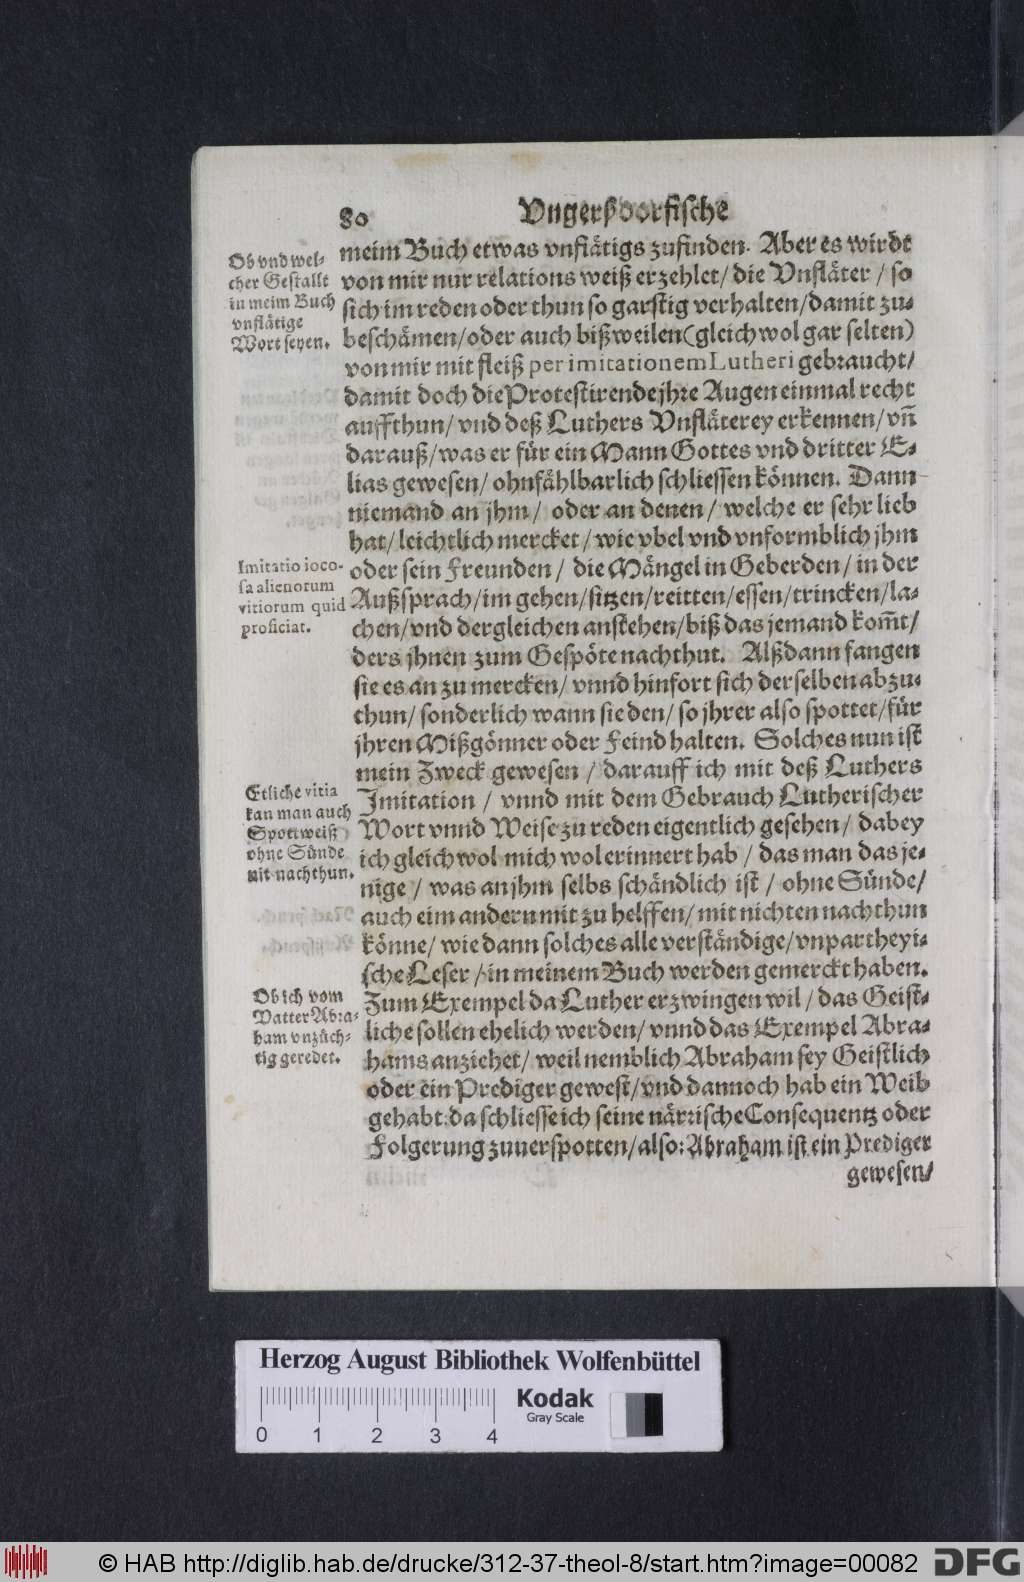 80 Vngerßdorfische
Ob vnd wel-
cher Gestallt
in meim Buch
vnflätige
Wort seyen.
meim Buch etwas vnflätigs zufinden. Aber es wirdt
von mir nur relations weiß erzehlet/ die Vnfläter / so
sich im reden oder thun so garstig verhalten/damit zu-
beschämen/oder auch bißweilen (gleichwol gar selten)
von mir mit fleiß per imitationem Lutheri gebraucht/
damit doch die Protestirende jhre Augen einmal recht
auffthun/ vnd deß Luthers Vnfläterey erkennen/ vñ
darauß/was er für ein Mann Gottes vnd dritter E-
lias gewesen/ ohnfählbarlich schliessen können. Dann
niemand an jhm/ oder an denen/ welche er sehr lieb
hat/leichtlich mercket/ wie vbel vnd vnformblich jhm
Imitatio ioco-
sa alienorum
vitiorum quid
proficiat.
oder sein Freunden/ die Mängel in Geberden/ in der
Außsprach/im gehen/sitzen/reitten/essen/trincken/la-
chen/vnd dergleichen anstehen/biß das jemand kom̃t/
ders jhnen zum Gespöte nachthut. Alßdann fangen
sie es an zu mercken/ vnnd hinfort sich derselben abzu-
thun/ sonderlich wann sie den/ so jhrer also spottet/für
jhren Mißgönner oder Feind halten. Solches nun ist
mein Zweck gewesen / darauff ich mit deß Luthers
Etliche vitia
kan man auch
Spottweiß
ohne Sünde
nit nachthun.
Imitation / vnnd mit dem Gebrauch Lutherischer
Wort vnnd Weise zu reden eigentlich gesehen/ dabey
ich gleichwol mich wol erinnert hab / das man das je-
nige / was an jhm selbs schändlich ist / ohne Sünde/
auch eim andern mit zu helffen/ mit nichten nachthun
könne/ wie dann solches alle verständige/vnpartheyi-
sche Leser / in meinem Buch werden gemerckt haben.
Ob ich vom
Vatter Abra-
ham vnzüch-
tig geredet.
Zum Exempel da Luther erzwingen wil / das Geist-
liche sollen ehelich werden/ vnnd das Exempel Abra-
hams anziehet/ weil nemblich Abraham sey Geistlich
oder ein Prediger gewest/ vnd dannoch hab ein Weib
gehabt: da schliesse ich seine närrische Consequentz oder
Folgerung zuuerspotten/also: Abraham ist ein Prediger
gewesen/
Herzog August Bibliothek Wolfenbüttel
Kodak
Gray Scale
0 1 2 3 4
© HAB http://diglib.hab.de/drucke/312-37-theol-8/start.htm?image=00082
DFG